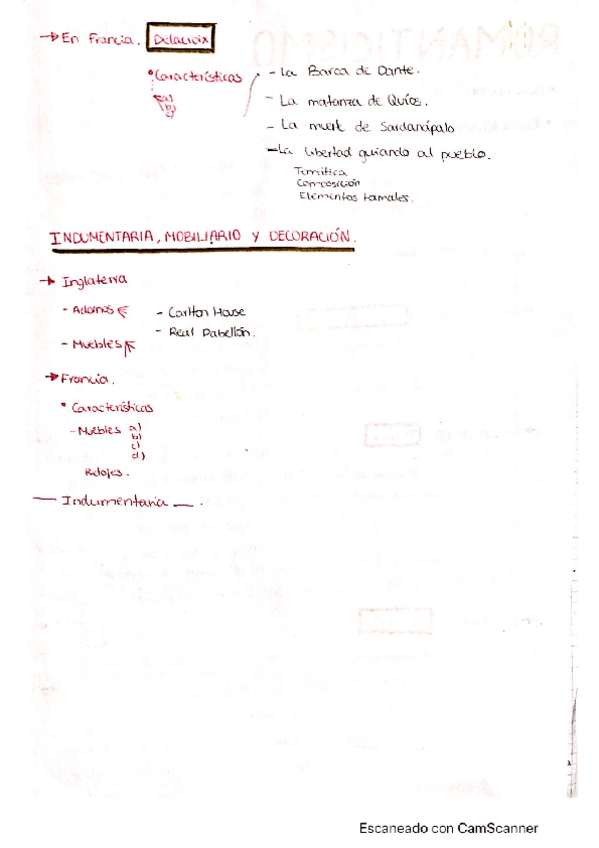 → En Francia. Delacroix
• Características
a)
b)
c)
- La Barca de Dante.
- La matanza de Quíos.
- La muerte de Sardanápalo
- La libertad guiando al pueblo.
Temática
Composición
Elementos formales.
INDUMENTARIA, MOBILIARIO Y DECORACIÓN.
→ Inglaterra
- Adornos
- Carlton House
- Real Pabellón.
- Muebles
→ Francia.
• Características
- Muebles a)
b)
c)
d)
Relojes.
— Indumentaria — .
ROMANTICISMO
Escaneado con CamScanner